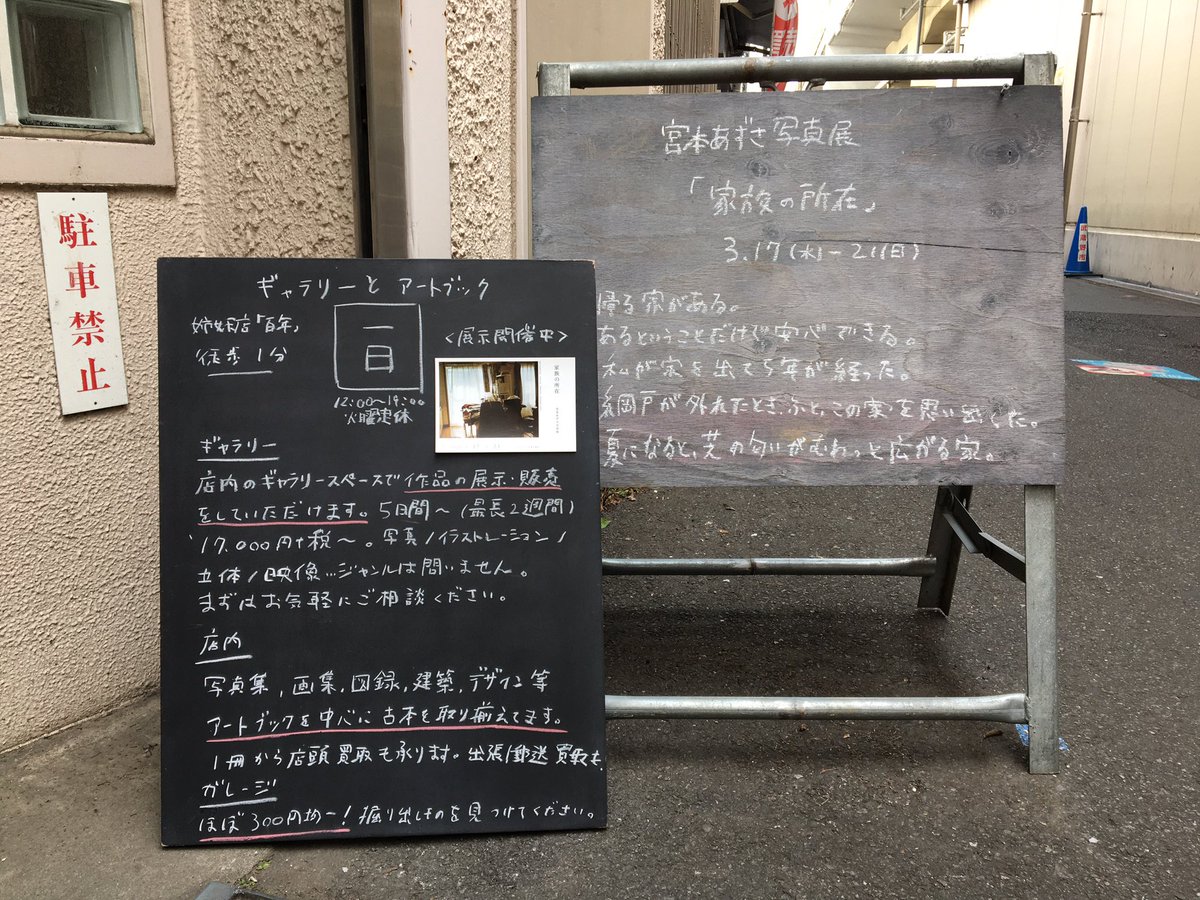 駐車禁止
ギャラリーと アートブック
姉妹店「百年」
徒歩 1分
一日
12:00~19:00
火曜定休
<展示開催中>
家族の所在
ギャラリー
店内のギャラリースペースで作品の展示・販売
をしていただけます。5日間~(最長2週間)
17,000円+税~。写真/イラストレーション/
立体/映像…ジャンルは問いません。
まずはお気軽にご相談ください。
店内
写真集,画集,図録,建築,デザイン等
アートブックを中心に古本を取り揃えてます。
1冊から店頭買取も承ります。出張/郵送買取も.
ガレージ
ほぼ300円均一!掘り出しものを見つけてください。
宮本あずさ写真展
「家族の所在」
3.17(水)-21(日)
帰る家がある。
あるということだけで安心できる。
私が家を出て5年が経った。
網戸が外れたとき、ふと、この家を思い出した。
夏になると、芝の匂いがむわっと広がる家。
武蔵野市